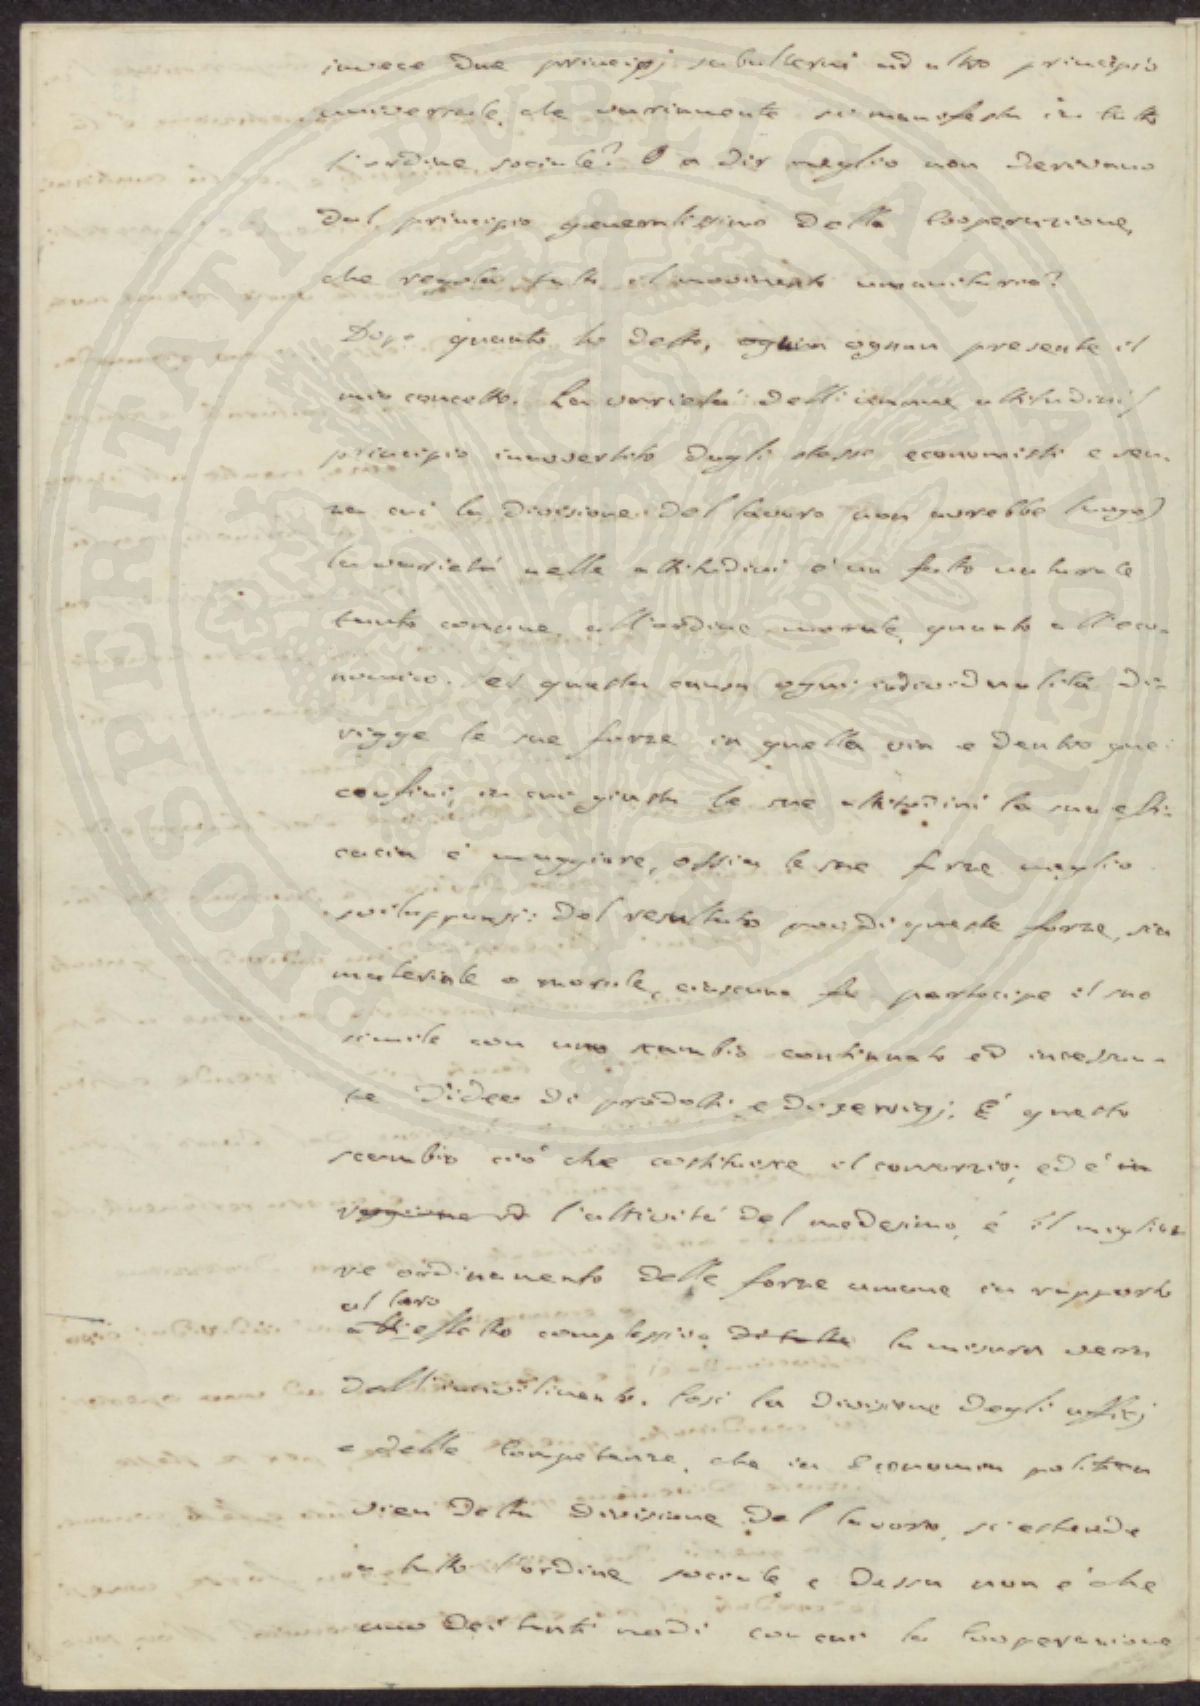 invece due principj subalterni ad altro principio
universale, che variamente si manifesta in tutto
l'ordine sociale? O a dir meglio non derivano
dal principio generalissimo della Cooperazione,
che regola tutto il movimento umanitario?
Dopo quanto ho detto, ognun ognun presente il
mio concetto. La varietà dell'umane attitudini (
principio innavvertito dagli stessi economisti e sen-
za cui la divisione del lavoro non avrebbe luogo)
la varietà nelle attitudini è un fatto naturale
tanto comune all'ordine morale, quanto all'eco-
nomico. Per questa causa ogni individualità di-
rigge le sue forze in quella via e dentro quei
confini, in cui giusta le sue attitudini la sua effi-
cacia è maggiore, ossia le sue forze meglio
sviluppansi: del resultato poi di queste forze, sia
materiale o morale, ciascuno fa partecipe il suo
simile con uno scambio continuato ed incessan-
te d'idee di prodotti e di servigj. È questo
scambio ciò che costituisce il consorzio; ed è in
raggione ad l'attività del medesimo, è il miglio-
re ordinamento delle forze umane in rapporto
al loro
effetto complessivo di tutta la misura vera
dell'incivilimento. Così la divisione degli ufficj
e delle Competenze, che in Economia politica
vien detta divisione del lavoro, si estende
a tutto l'ordine sociale, e dessa non è che
uno dei tanti modi con cui la Cooperazione
PROSPERITATI PUBLICAE AUGENDAE